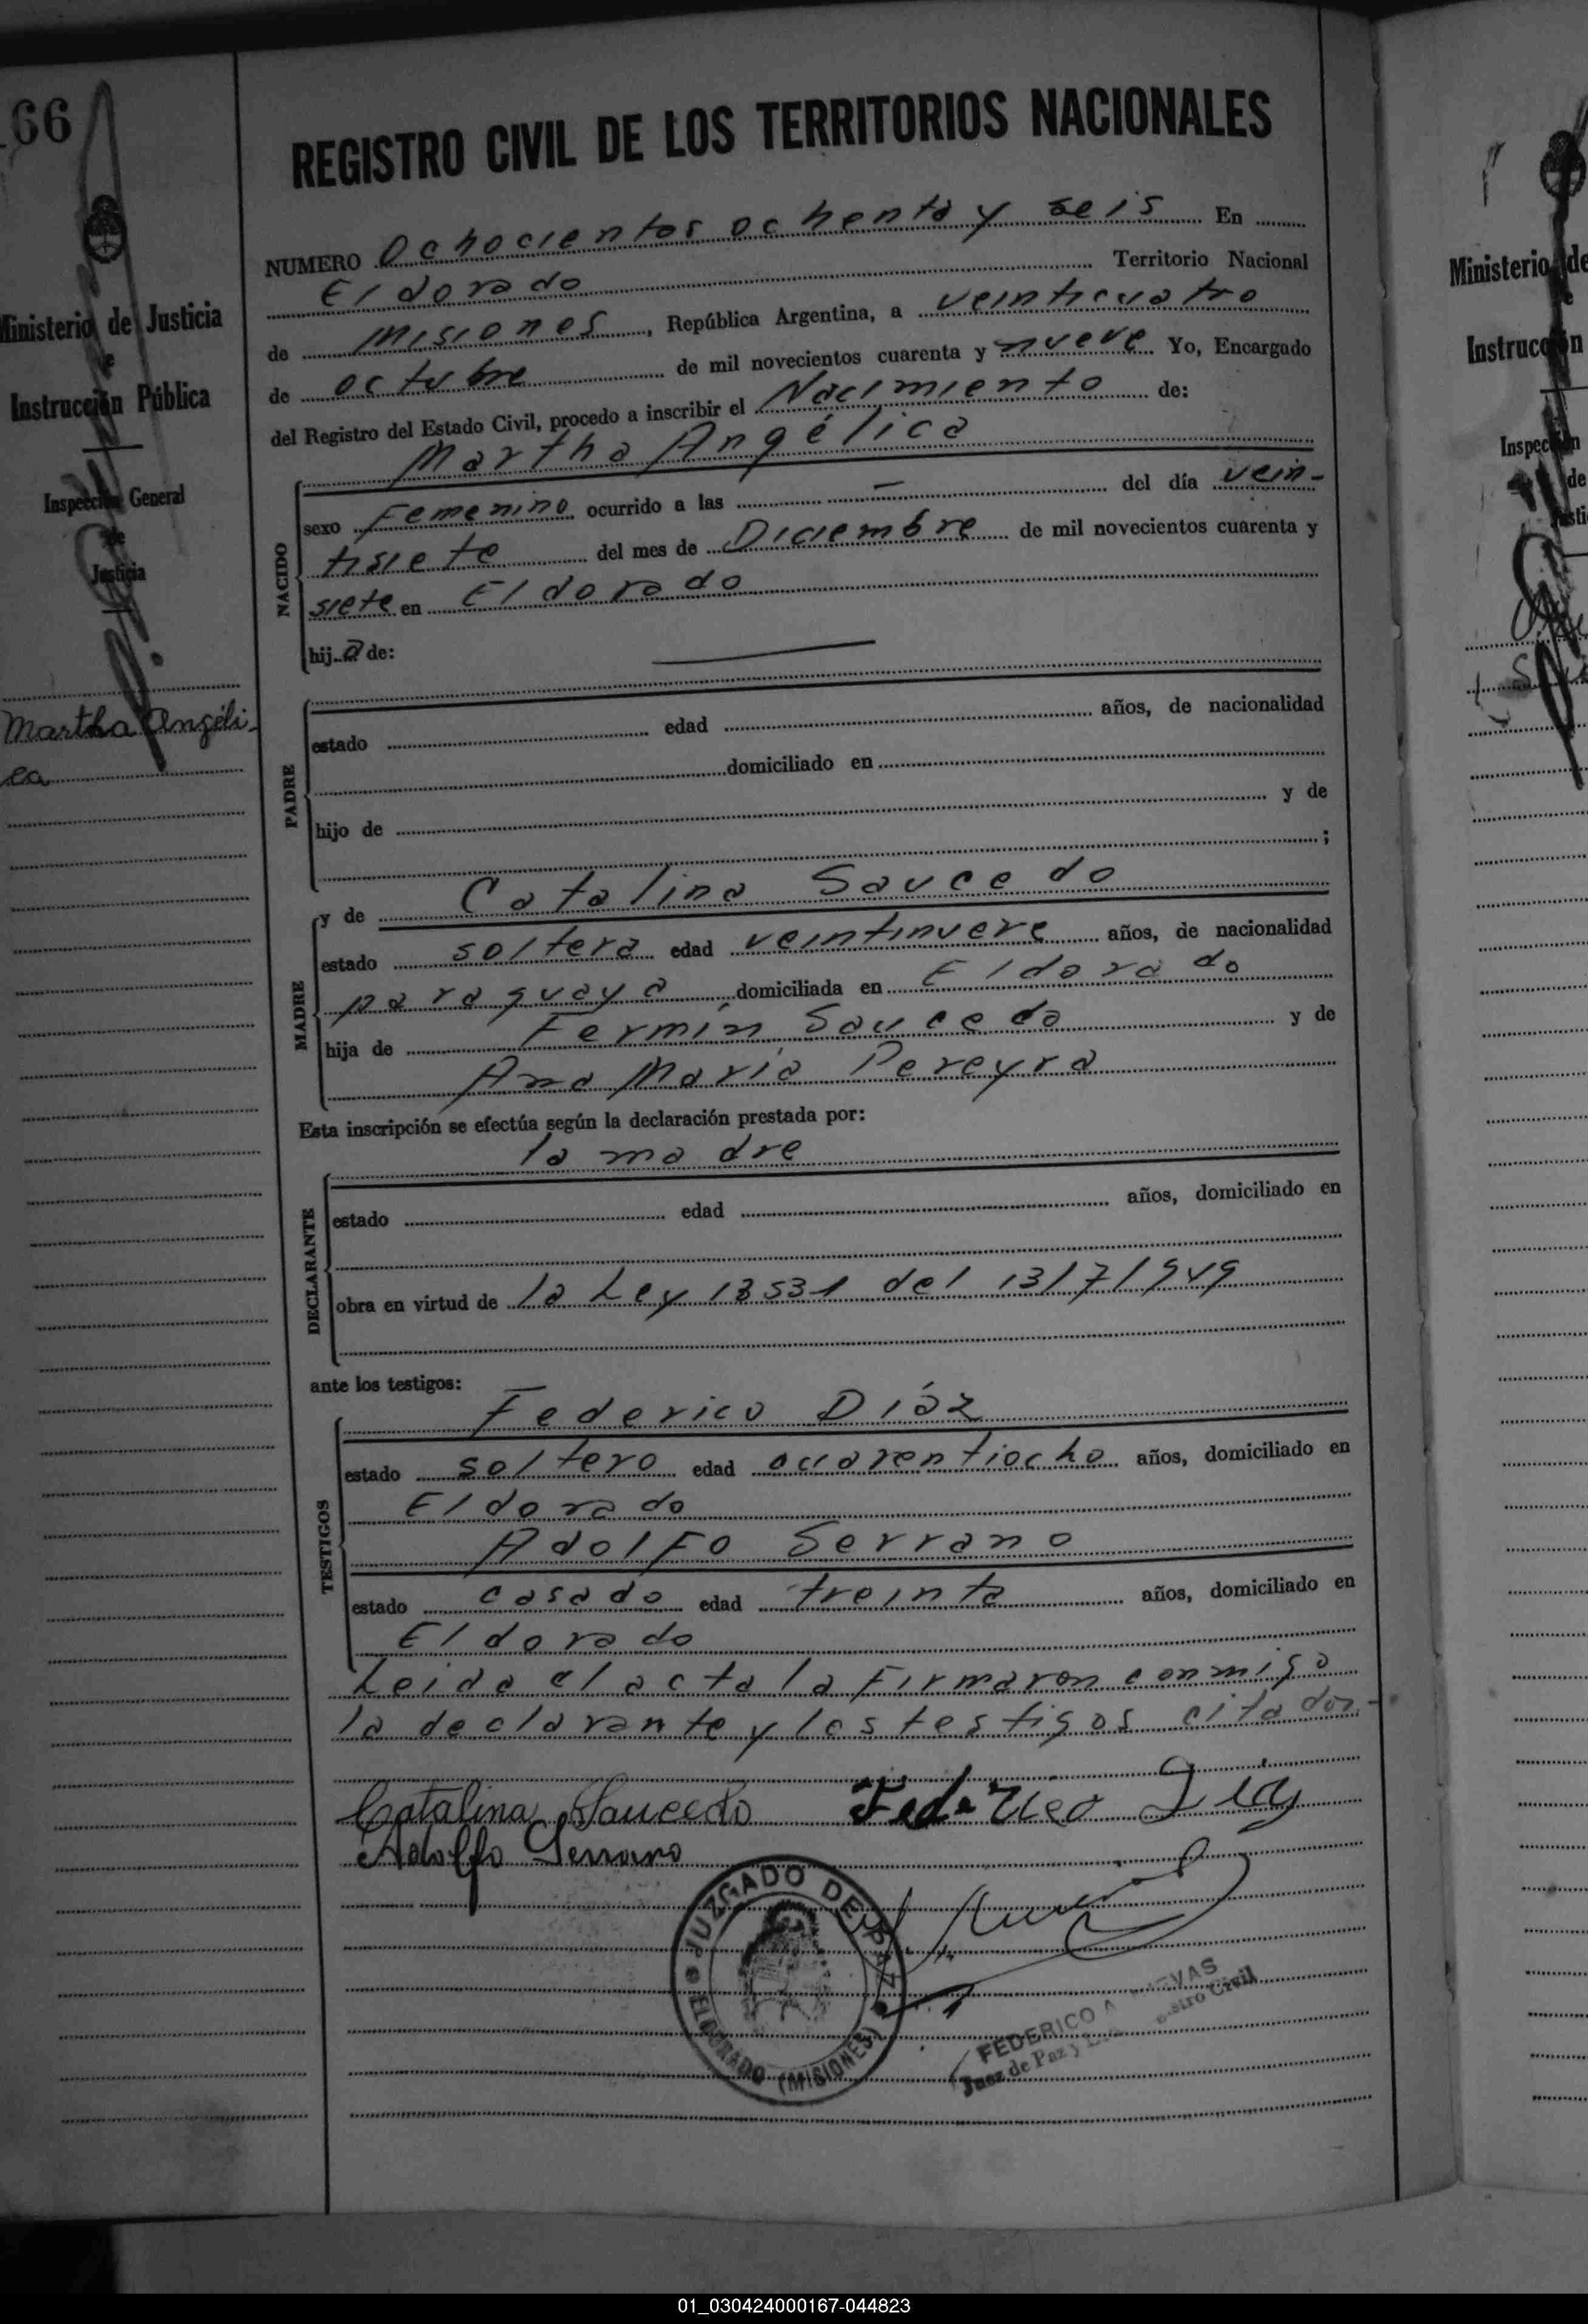 66
REGISTRO CIVIL DE LOS TERRITORIOS NACIONALES
NUMERO Ochocientos ochenta y seis En
Eldorado Territorio Nacional
de Misiones, República Argentina, a veinticuatro
de octubre de mil novecientos cuarenta y nueve Yo, Encargado
del Registro del Estado Civil, procedo a inscribir el Nacimiento de:
Martha Angélica
NACIDO
sexo Femenino ocurrido a las — del día vein-
tisiete del mes de Diciembre de mil novecientos cuarenta y
siete en Eldorado
hija de:
PADRE
estado edad años, de nacionalidad
domiciliado en
hijo de y de
;
MADRE
y de Catalina Saucedo
estado soltera edad veintinueve años, de nacionalidad
paraguaya domiciliada en Eldorado
hija de Fermín Saucedo y de
Ana María Pereyra
Esta inscripción se efectúa según la declaración prestada por:
la madre
DECLARANTE
estado edad años, domiciliado en
obra en virtud de la Ley 13531 del 13/7/949
ante los testigos:
TESTIGOS
Federico Díaz
estado soltero edad cuarentiocho años, domiciliado en
Eldorado
Adolfo Serrano
estado casado edad treinta años, domiciliado en
Eldorado
Leida el acta la Firmaron conmigo
la declarante y los testigos citados.-
Catalina Saucedo Federico Diaz
Adolfo Serrano
JUZGADO DE PAZ
ELDORADO (MISIONES)
FEDERICO A
Juez de Paz y Civil
Ministerio de Justicia
e
Instrucción Pública
Inspección General
de
Justicia
Martha Angéli-
ca
Ministerio de
e
Instrucción
Inspección
de
01_030424000167-044823